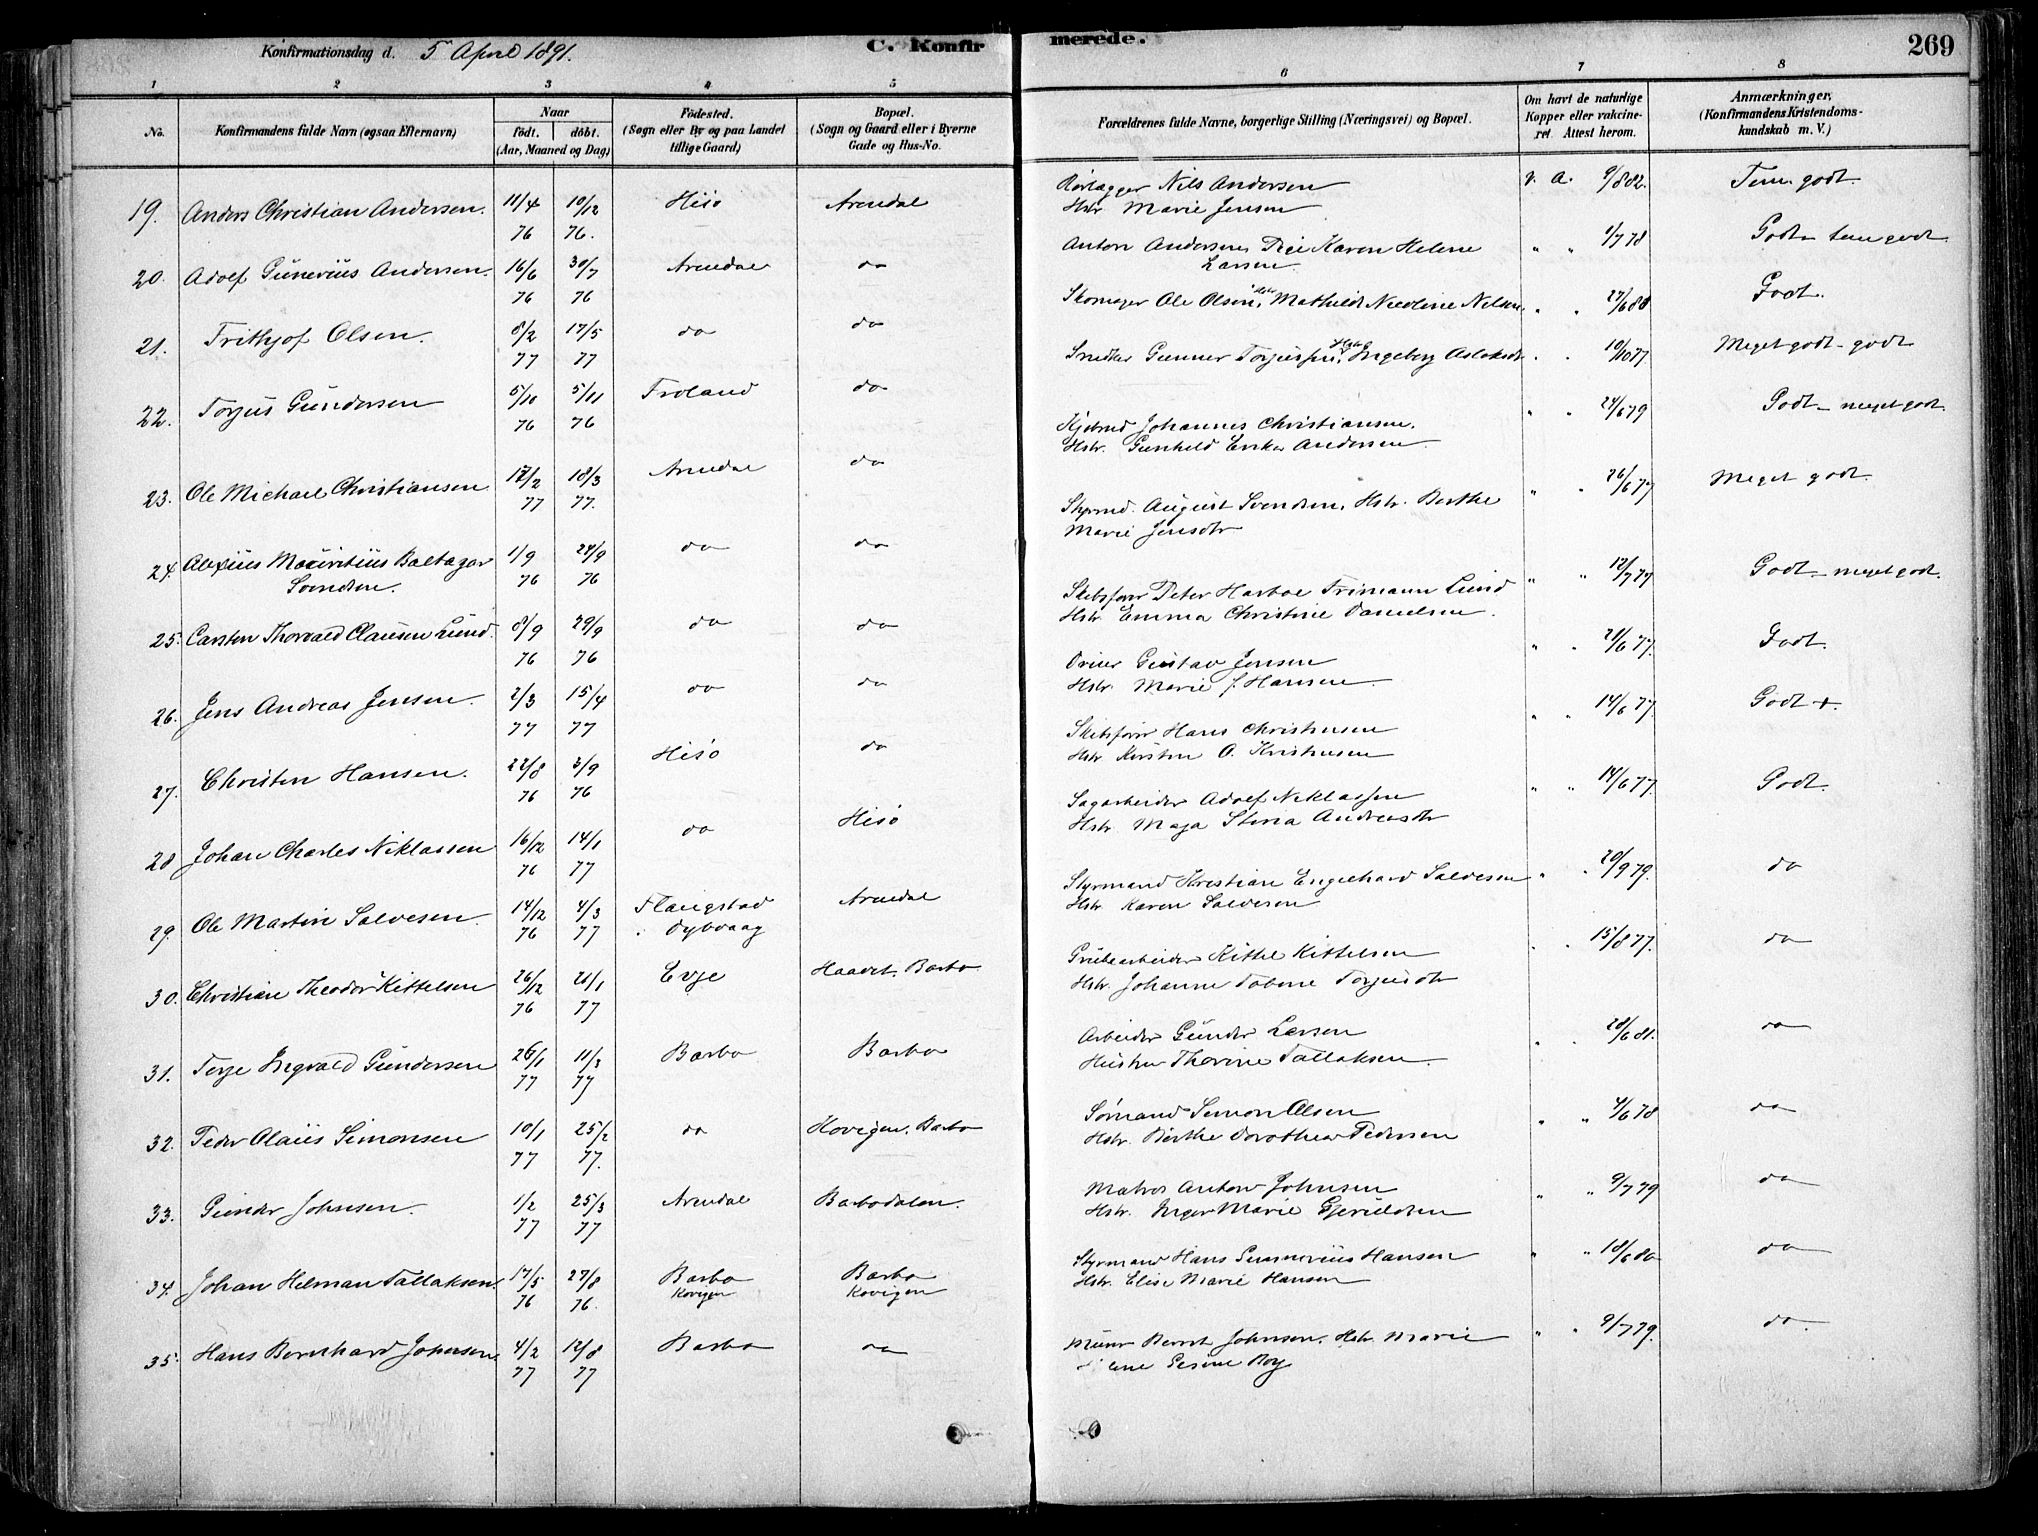 Konfirmationsdag d. 5 April 1891.
C. Konfirmerede.
269
1 2 3 4 5 6 7 8
No.
Konfirmandens fulde Navn (ogsaa Efternavn)
Naar
födt. döbt.
(Aar, Maaned og Dag)
Födested.
(Sogn eller By og paa Landet
tillige Gaard)
Bopæl.
(Sogn og Gaard eller i Byerne
Gade og Hus-No.
Forældrenes fulde Navne, borgerlige Stilling (Næringsvei) og Bopæl.
Om havt de naturlige
Kopper eller vakcine-
ret. Attest herom.
Anmærkninger,
(Konfirmandens Kristendoms-
kundskab m. V.)
19. Anders Christian Andersen. 11/4 76 10/12 76. Hisö Arendal
Rörlægger Nils Andersen v. a. 9/8 82. Tem. godt.
Hstr. Marie Jensen
20. Adolf Gunerius Andersen. 16/6 76 30/7 76 Arendal do
Anton Andersen Pige Karen Helene " " 1/7 78 Godt - tem godt
Larsen
21. Frithjof Olsen. 8/2 77 17/5 77 do do
Skomager Ole Olsen, Hstr Mathilde Nicoline Nilsen. " " 27/6 88 Godt.
22. Torjus Gundersen 5/10 76 5/11 76 Froland do
Snedker Gunner Torjussen, Ingeborg Aslaksdr " " 10/10 77 Meget godt - godt
23. Ole Michael Christiansen 17/2 77 18/3 77. Arendal do
Kjöbmd Johannes Christiansen. " " 24/6 79 Godt - meget godt.
Hstr. Gunhild Erika Andersen
24. Alexius Mauritius Baltazar 1/9 76 24/9 76 do do
Svendsen.
Styrmd. August Svendsen, Hstr. Berthe " " 26/6 77 Meget godt.
Marie Jensdtr
25. Carsten Thorvald Clausen Lund. 8/9 76 29/9 76 do do
Skibsförer Peter Harboe Frimann Lund " " 12/7 77 Godt - meget godt.
Hstr. Emma Christine Danielsen.
26. Jens Andreas Jensen. 2/3 77 15/4 77 do do
Gustav Jensen " " 21/6 77. Godt.
Hstr. Marie J. Hansen.
27. Christen Hansen. 22/8 76 3/9 76 Hisö do
Skibsförer Hans Christensen " " 14/6 77. Godt +.
Hstr Kirsten O. Kristensen
28 Johan Charles Niklassen 16/12 76 14/1 77 do Hisö
Sagarbeider Adolf Niklassen " " 14/6 77. Godt.
Hstr. Maja Stina Andreasdtr
29. Ole Martin Salvesen. 14/12 76 4/3 77 Flangstad Arendal
Dybvaag
Styrmand Kristian Engelhard Salvesen " " 20/9 79. do
Hstr Karen Salvesen
30. Christian Theodor Kittelsen 26/12 76 21/1 77 Evje Haavet. Barbo
Grubearbeider Kittel Kittelsen " " 15/8 77. do
Hstr. Johanne Tobine Torjusdtr
31. Terje Ingvald Gundersen 26/1 77 11/3 77 Barbo Barbo
Arbeider Gunder Larsen " " 28/6 81. do
Hustru Thorine Tallaksen.
32. Peder Olaus Simonsen 10/1 77 25/2 77. do Kovigen. Barbo
Sömand Simon Olsen " " 4/6 78 do
Hstr. Berthe Dorothea Pedersen
33. Gunder Johnsen. 1/2 77 25/3 77 Arendal Barbodalen.
Matros Anton Johnsen " " 9/7 79 do
Hstr. Inger Marie Gjeruldsen
34. Johan Hilman Tallaksen. 17/5 76 27/8 76. Barbo Barbo
Kovigen Kovigen
Styrmand Hans Gunnerius Hansen " " 18/6 80 do
Hstr. Elise Marie Hansen
35. Hans Bernhard Johnsen. 4/2 77 12/8 77 Barbo do
Murer Bernt Johnsen. Hstr. Marie " " 9/7 79. do.
Boy